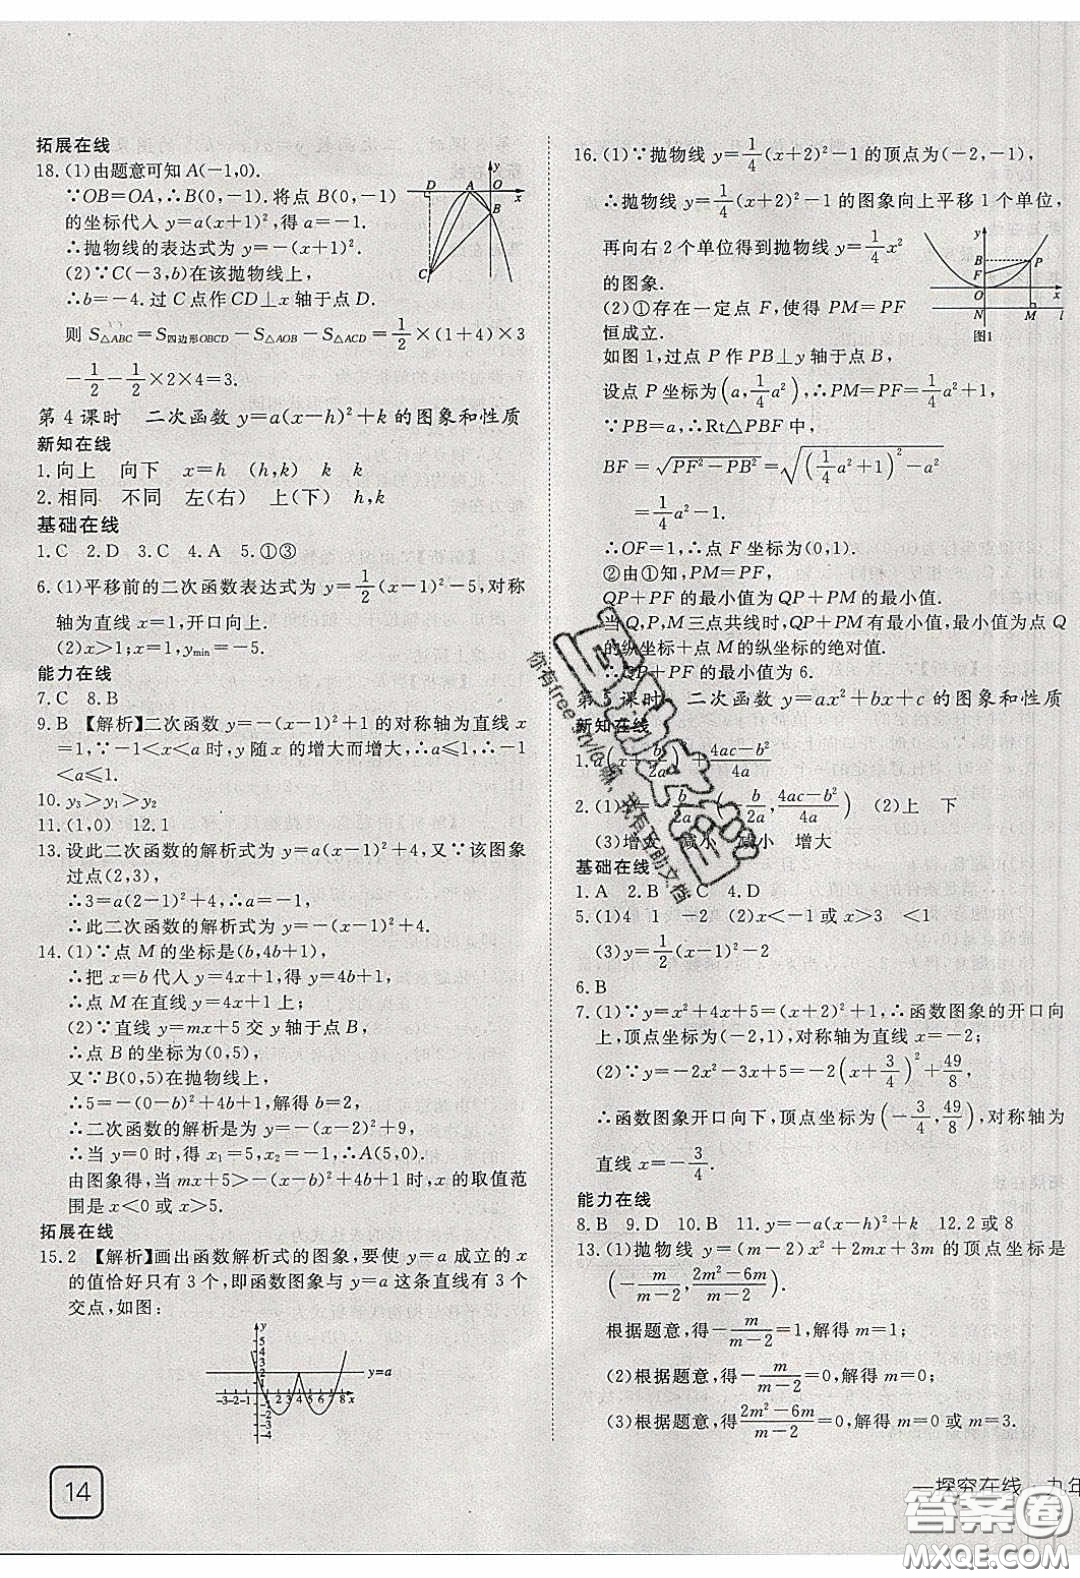 拓展在线
18.(1)由题意可知 A(-1,0).
∵OB=OA,∴B(0,-1).将点 B(0,-1)
的坐标代入 y=a(x+1)²,得 a=-1.
∴抛物线的表达式为 y=-(x+1)².
(2)∵C(-3,b)在该抛物线上,
∴b=-4.过 C 点作 CD⊥x 轴于点 D.
则 S△ABC=S四边形OBCD-S△AOB-S△ACD=1/2×(1+4)×3
-1/2-1/2×2×4=3.
D A O y x B C
第 4 课时 二次函数 y=a(x-h)²+k 的图象和性质
新知在线
1.向上 向下 x=h (h,k) k k
2.相同 不同 左(右) 上(下) h,k
基础在线
1.C 2.D 3.C 4.A 5.①③
6.(1)平移前的二次函数表达式为 y=1/2(x-1)²-5,对称
轴为直线 x=1,开口向上.
(2)x>1;x=1,ymin=-5.
能力在线
7.C 8.B
9.B 【解析】二次函数 y=-(x-1)²+1 的对称轴为直线 x
=1,∵-1<x<a 时,y 随 x 的增大而增大,∴a≤1.∴-1
<a≤1.
10.y₃>y₁>y₂
11.(1,0) 12.1
13.设此二次函数的解析式为 y=a(x-1)²+4,又∵该图象
过点(2,3),
∴3=a(2-1)²+4,∴a=-1,
∴此二次函数的解析式为 y=-(x-1)²+4.
14.(1)∵点 M 的坐标是(b,4b+1),
∴把 x=b 代入 y=4x+1,得 y=4b+1,
∴点 M 在直线 y=4x+1 上;
(2)∵直线 y=mx+5 交 y 轴于点 B,
∴点 B 的坐标为(0,5),
又∵B(0,5)在抛物线上,
∴5=-(0-b)²+4b+1,解得 b=2,
∴二次函数的解析是为 y=-(x-2)²+9,
∴当 y=0 时,得 x₁=5,x₂=-1,∴A(5,0).
由图象得,当 mx+5>-(x-b)²+4b+1 时,x 的取值范
围是 x<0 或 x>5.
拓展在线
15.2 【解析】画出函数解析式的图象,要使 y=a 成立的 x
的值恰好只有 3 个,即函数图象与 y=a 这条直线有 3 个
交点,如图:
y
5
4
3
2
1
y=a
-3-2-1 1 2 3 4 5 6 7 8 x
-1
-2
-3
-4
14
16.(1)∵抛物线 y=1/4(x+2)²-1 的顶点为(-2,-1),
∴抛物线 y=1/4(x+2)²-1 的图象向上平移 1 个单位,
再向右 2 个单位得到抛物线 y=1/4x²
的图象.
(2)①存在一定点 F,使得 PM=PF
恒成立.
如图 1,过点 P 作 PB⊥y 轴于点 B,
y B P F O x N M l
图1
设点 P 坐标为(a,1/4a²),∴PM=PF=1/4a²+1,
∵PB=a,∴Rt△PBF 中,
BF=√(PF²-PB²)=√((1/4a²+1)²-a²)
=1/4a²-1.
∴OF=1,∴点 F 坐标为(0,1).
②由①知,PM=PF,
QP+PF 的最小值为 QP+PM 的最小值.
当 Q,P,M 三点共线时,QP+PM 有最小值,最小值为点 Q
的纵坐标+点 M 的纵坐标的绝对值.
∴QP+PF 的最小值为 6.
第 5 课时 二次函数 y=ax²+bx+c 的图象和性质
新知在线
1.(x+b/2a)²+(4ac-b²)/4a
2.(1)x=-b/2a (-b/2a,(4ac-b²)/4a) (2)上 下
(3)增大 减小 减小 增大
基础在线
1.A 2.B 3.C 4.D
5.(1)4 1 -2 (2)x<-1 或 x>3 <1
(3)y=1/2(x-1)²-2
6.B
7.(1)∵y=x²+4x+5=(x+2)²+1,∴函数图象的开口向
上,顶点坐标为(-2,1),对称轴为直线 x=-2;
(2)∵y=-2x²-3x+5=-2(x+3/4)²+49/8,
∴函数图象开口向下,顶点坐标为(-3/4,49/8),对称轴为
直线 x=-3/4.
能力在线
8.B 9.D 10.B 11.y=-a(x-h)²+k 12.2 或 8
13.(1)抛物线 y=(m-2)x²+2mx+3m 的顶点坐标是
(-m/(m-2),(2m²-6m)/(m-2)),
根据题意,得-m/(m-2)=1,解得 m=1;
(2)根据题意,得-m/(m-2)=0,解得 m=0;
(3)根据题意,得(2m²-6m)/(m-2)=0,解得 m=0 或 m=3.
—探究在线 九年
答案圈
MXQE.COM